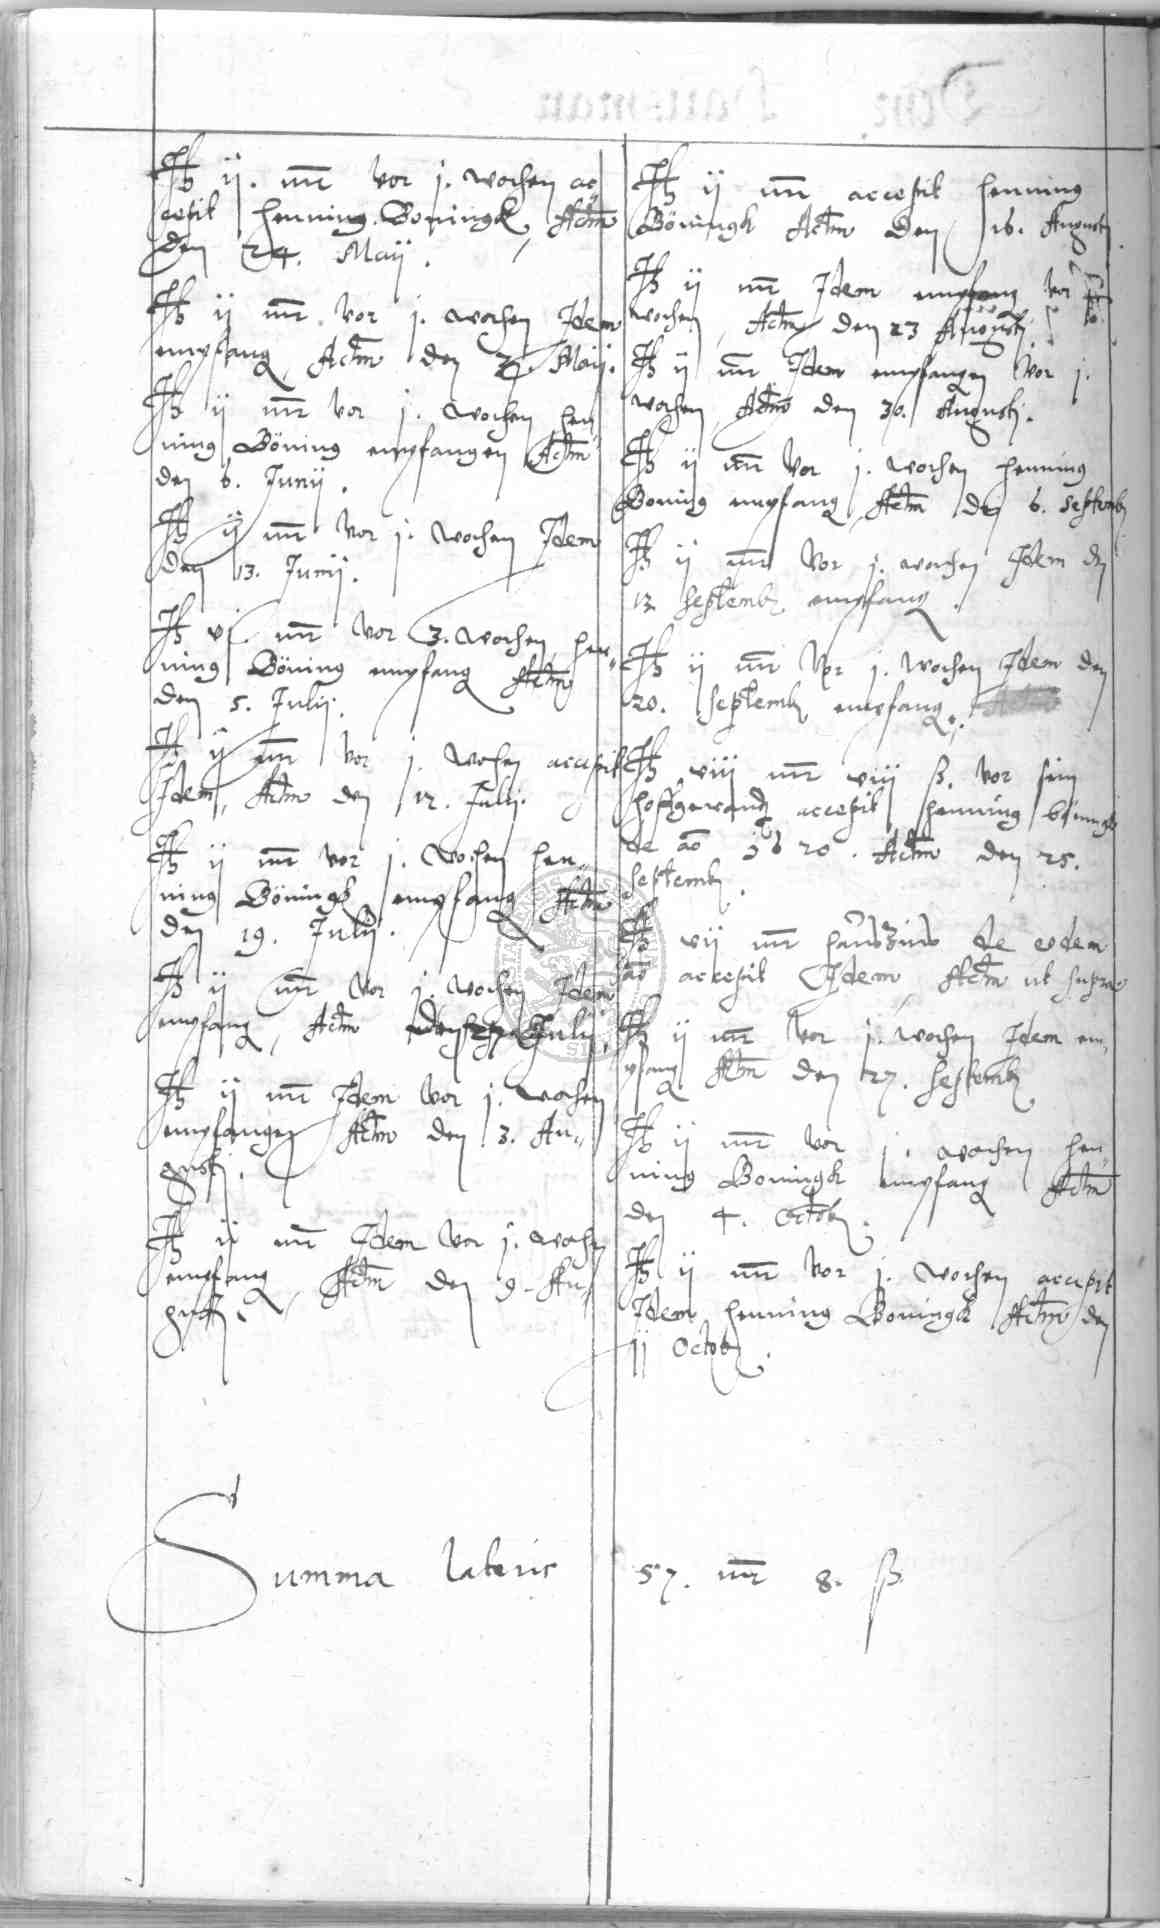 It ij. mr vor j. wochen ac
cepit Henning Boningk, Actm
den 24. Maij.
It ij mr vor j. wochen Idem
empfang, Actm den Maij.
It ij mr vor j. wochen Hen
ning Böning empfangen Actm
den 6. Junij.
It ij mr vor j. wochen Idem
den 13. Junij.
It vj mr vor 3. wochen Hen„
ning Böning empfang Actm
den 5. Julij.
It ij mr vor j. wochen accepit
Idem, Actm den 12. Julij.
It ij mr vor j. wochen Hen„
ning Böningk empfang Actm
den 19. Julij.
It ij mr vor j. wochen Idem
empfang, Actm den Julij.
It ij mr Idem vor j. wochen
empfangen Actm den 3. Au„
gustj.
It ij mr Idem vor j. wochen
empfang, Actm den 9. Au„
gustj.
It ij mr accepit Henning
Böningk Actm den 16. Augustj.
It ij mr Idem empfang vor j
wochen, Actm den 23 Augustj.
It ij mr Idem empfangen vor j.
wochen, Actm den 30. Augustj.
It ij mr vor j. wochen Henning
Boning empfang, Actm den 6. Septemb
It ij mr vor j. wochen Idem den
13. Septemb empfang.
It ij mr vor j. wochen Idem den
20. Septemb empfang.
It viij mr viij ß. vor sein
hoffgewandt accepit Henning Böningk
de ao 1620. Actm den 25.
Septemb.
It vij mr de eodem
ao accepit Idem Actm ut supra
It ij mr vor j. wochen Idem em„
pfang Actm den 27. Septemb
It ij mr vor j. wochen Hen„
ning Boningk empfang Actm
den 4. Octob.
It ij mr vor j. wochen accepit
Idem Henning Boningk Actm den
11 Octob.
Summa lateris 57. mr 8. ß.